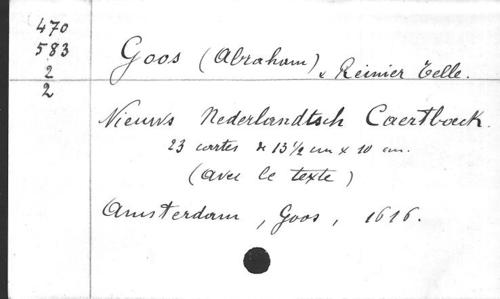 470
583
2
2
Goos (Abraham) & Reinier Telle.
Nieuws Nederlandtsch Caertboek.
23 cartes de 13 1/2 cm x 10 cm.
(avec le texte)
Amsterdam, Goos, 1616.